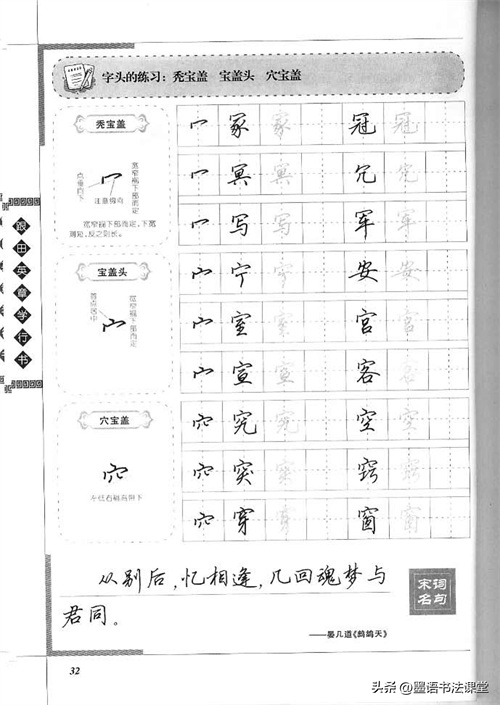 字头的练习：秃宝盖 宝盖头 穴宝盖
秃宝盖
点垂向下
宽窄视下部而定
注意倾向
宽窄视下部而定，下宽
则短，反之则长。
冖 冢 冢 冠 冠
冖 冥 冥 冗 冗
冖 写 写 军 军
宝盖头
首点居中
宽窄视下部而定
宀 宁 宁 安 安
宀 室 室 宫 宫
宀 宣 宣 客 客
穴宝盖
左低右稍高但下
穴 究 究 空 空
穴 突 突 窍 窍
穴 穿 穿 窗 窗
跟田英章学行书
从别后，忆相逢，几回魂梦与
君同。
宋词
名句
——晏几道《鹧鸪天》
32
头条 @墨语书法课堂